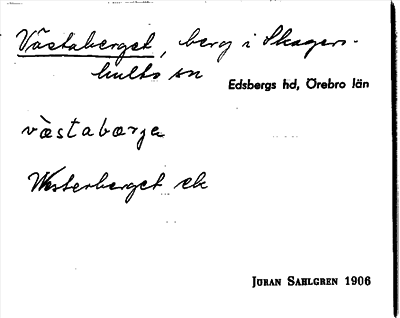 Västaberget, berg i Skagers-
hults sn
Edsbergs hd, Örebro län
västabærja
Westerberget ek
JÖRAN SAHLGREN 1906